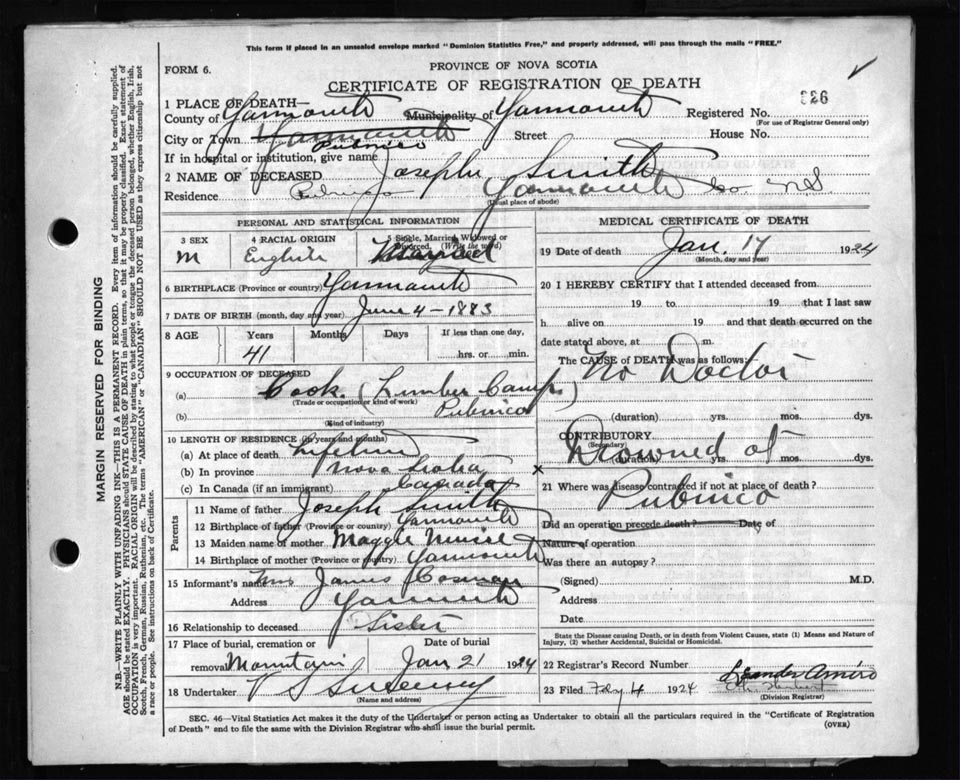 This form if placed in an unsealed envelope marked "Dominion Statistics Free," and properly addressed, will pass through the mails "FREE."
FORM 6.
PROVINCE OF NOVA SCOTIA
CERTIFICATE OF REGISTRATION OF DEATH
1 PLACE OF DEATH—
County of Yarmouth Municipality of Yarmouth Registered No. 326
(For use of Registrar General only)
City or Town Yarmouth Street House No.
Pubnico
If in hospital or institution, give name
2 NAME OF DECEASED Joseph Smith
Residence Pubnico Yarmouth Co NS
(Usual place of abode)
PERSONAL AND STATISTICAL INFORMATION
3 SEX M
4 RACIAL ORIGIN English
5 Single, Married, Widowed or Divorced. (Write the word) Married
6 BIRTHPLACE (Province or country) Yarmouth
7 DATE OF BIRTH (month, day and year) June 4 - 1883
8 AGE Years Months Days If less than one day,
41 hrs. or min.
9 OCCUPATION OF DECEASED
(a) Cook (Lumber Camp.)
(Trade or occupation or kind of work)
(b) Pubnico
(Kind of industry)
10 LENGTH OF RESIDENCE (in years and months)
(a) At place of death Lifetime
(b) In province Nova Scotia
(c) In Canada (if an immigrant) Canada
Parents
11 Name of father Joseph Smith
12 Birthplace of father (Province or country) Yarmouth
13 Maiden name of mother Maggie
14 Birthplace of mother (Province or country) Yarmouth
15 Informant's name Mrs James Cosman
Address Yarmouth
16 Relationship to deceased Sister
17 Place of burial, cremation or Date of burial
removal Mountain Jan 21 1924
18 Undertaker V S Sweeney
(Name and address)
MEDICAL CERTIFICATE OF DEATH
19 Date of death Jan. 17 1924
(Month, day and year)
20 I HEREBY CERTIFY that I attended deceased from
19 to 19 that I last saw
h alive on 19 and that death occurred on the
date stated above, at m.
The CAUSE of DEATH was as follows:
No Doctor
(duration) yrs. mos. dys.
CONTRIBUTORY
(Secondary)
Drowned at
(duration) yrs. mos. dys.
x
21 Where was disease contracted if not at place of death?
Pubnico
Did an operation precede death? Date of
Nature of operation
Was there an autopsy?
(Signed) M.D.
Address
Date
State the Disease causing Death, or in death from Violent Causes, state (1) Means and Nature of
Injury, (2) whether Accidental, Suicidal or Homicidal.
22 Registrar's Record Number
Leander Amiro
23 Filed Feby 4 1924
(Division Registrar)
SEC. 46—Vital Statistics Act makes it the duty of the Undertaker or person acting as Undertaker to obtain all the particulars required in the "Certificate of Registration
of Death" and to file the same with the Division Registrar who shall issue the burial permit.
(OVER)
MARGIN RESERVED FOR BINDING
N.B.—WRITE PLAINLY WITH UNFADING INK—THIS IS A PERMANENT RECORD. Every item of information should be carefully supplied.
AGE should be stated EXACTLY. PHYSICIANS should STATE CAUSE OF DEATH in plain terms, so that it may be properly classified. Exact statement of
OCCUPATION is very important. RACIAL ORIGIN will be described by stating to what people or tongue the deceased person belonged, whether English, Irish,
Scotch, French, German, Russian, Ruthenian, etc. The terms "AMERICAN" or "CANADIAN" SHOULD NOT BE USED as they express citizenship but not
a race or people. See instructions on back of Certificate.